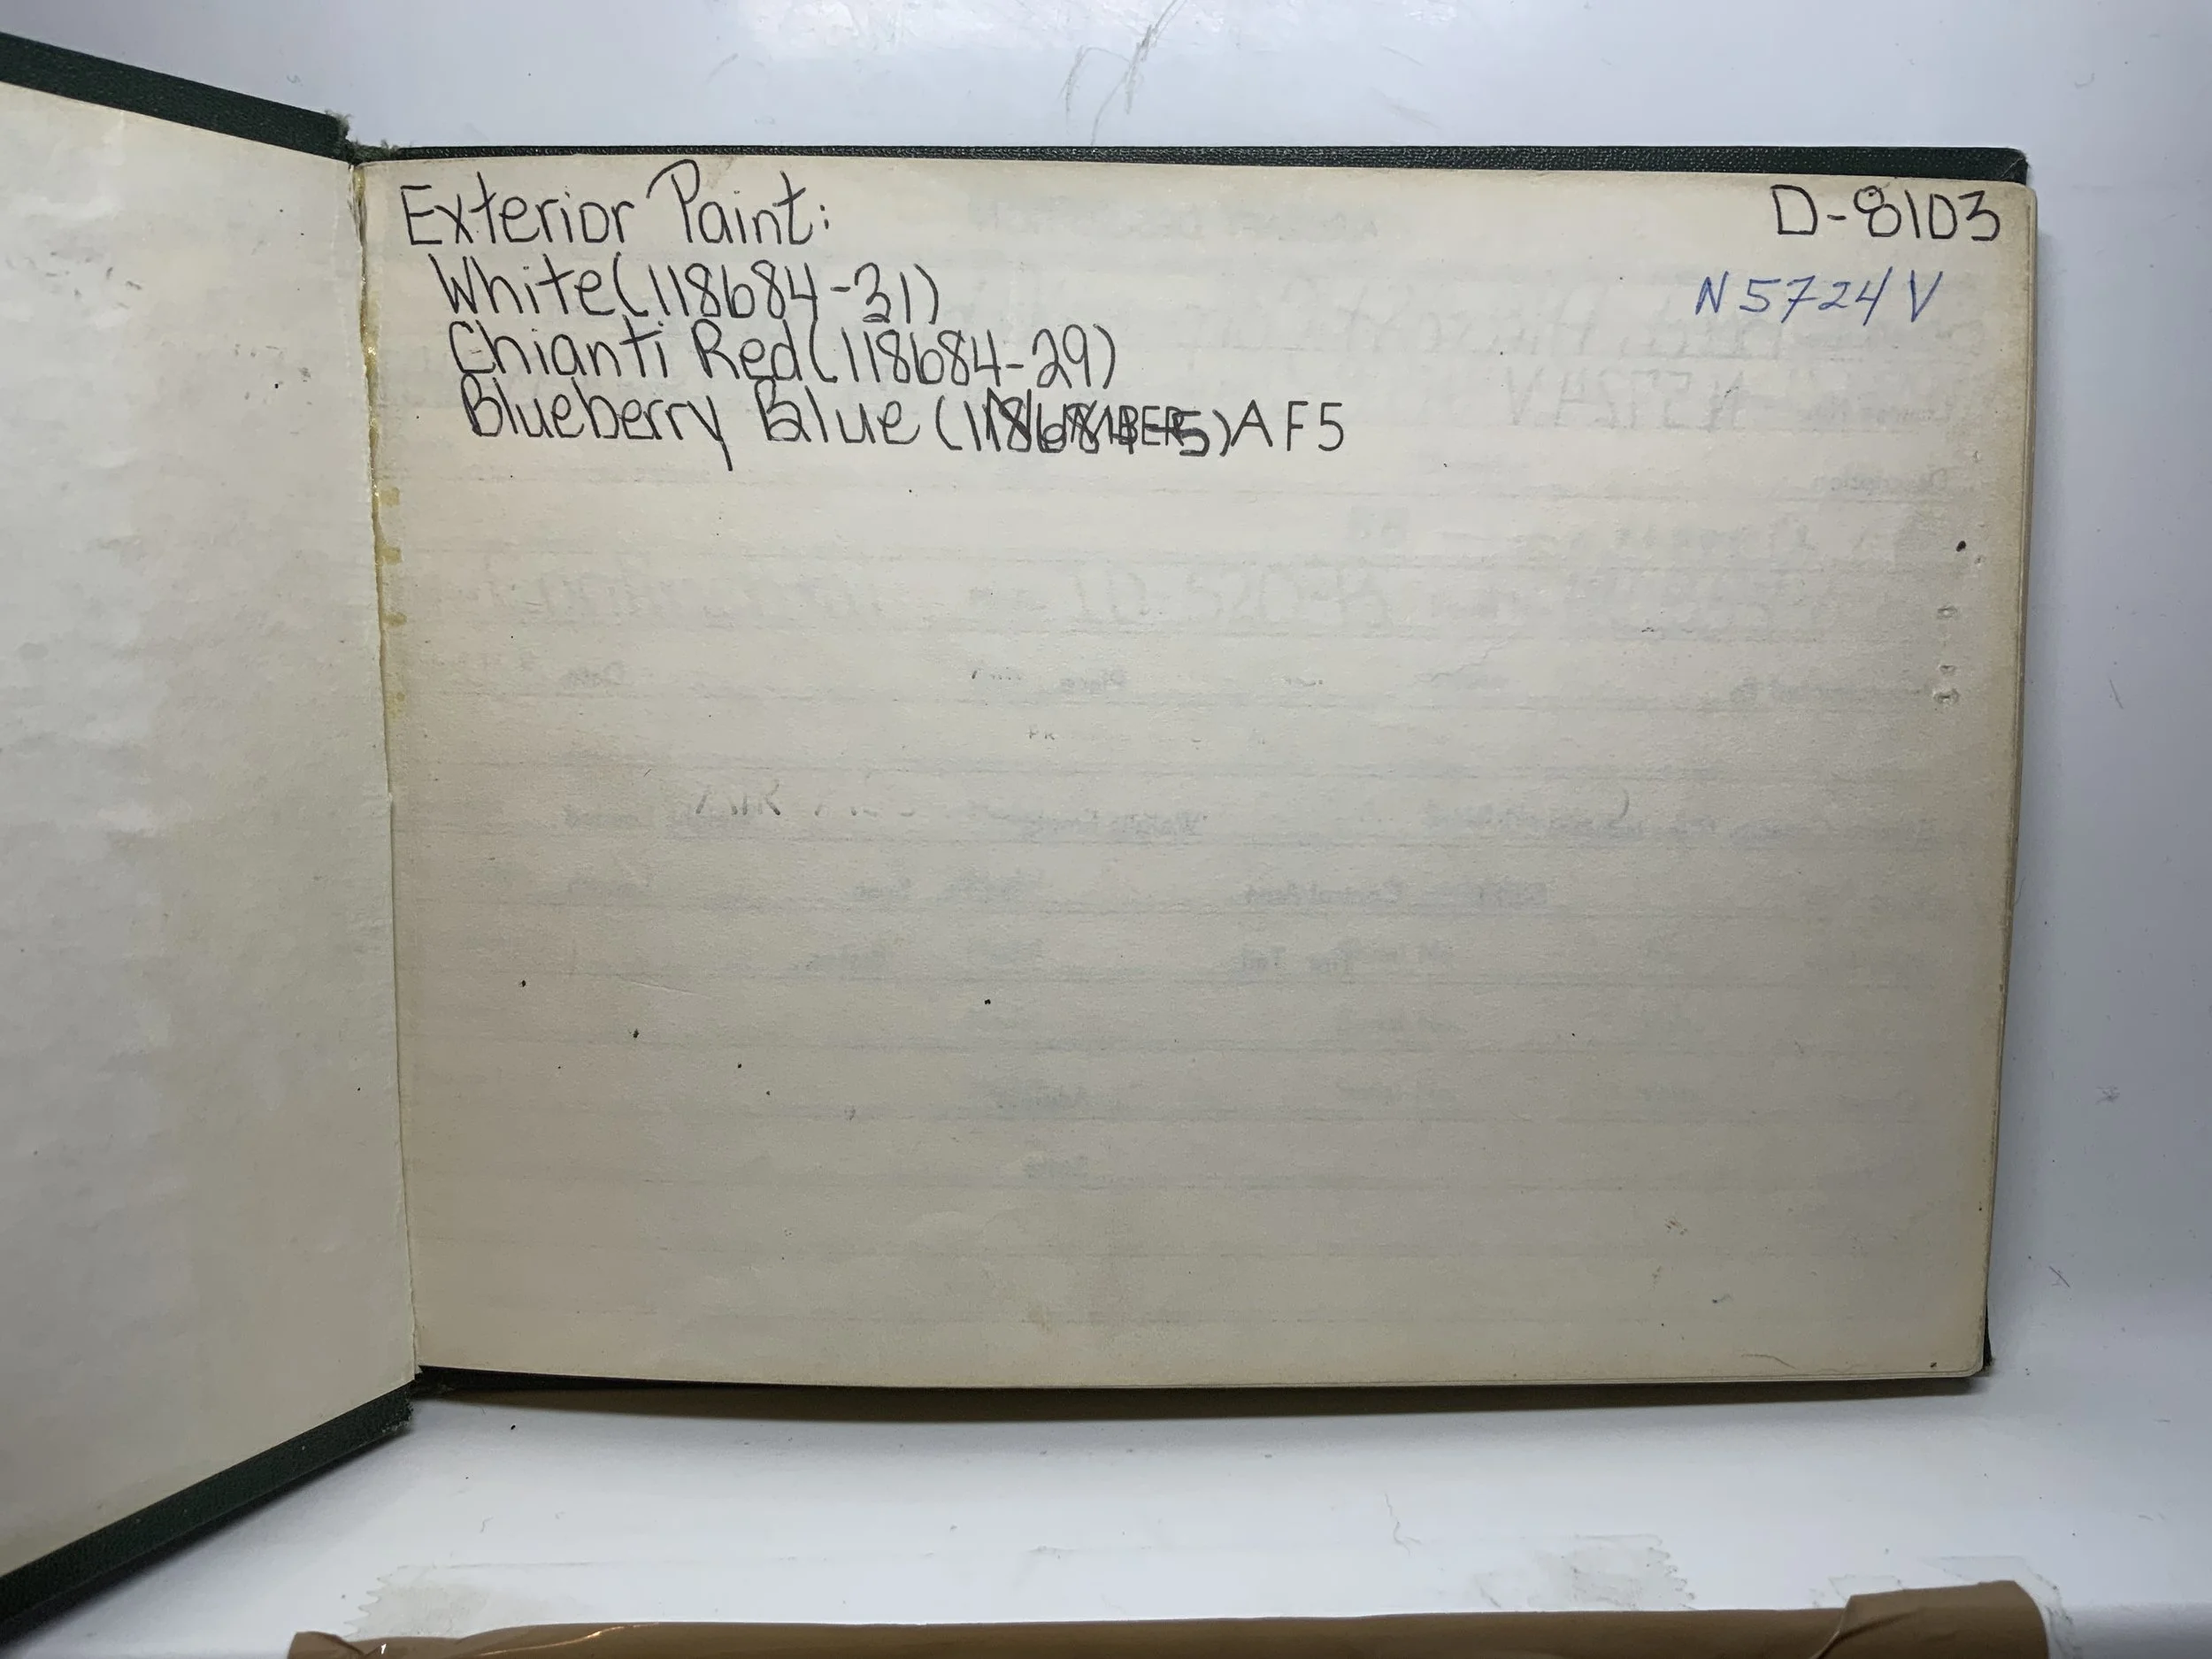 Exterior Paint:
D-8103
White (118684-31)
N5724V
Chianti Red (118684-29)
Blueberry Blue ( ) AF5